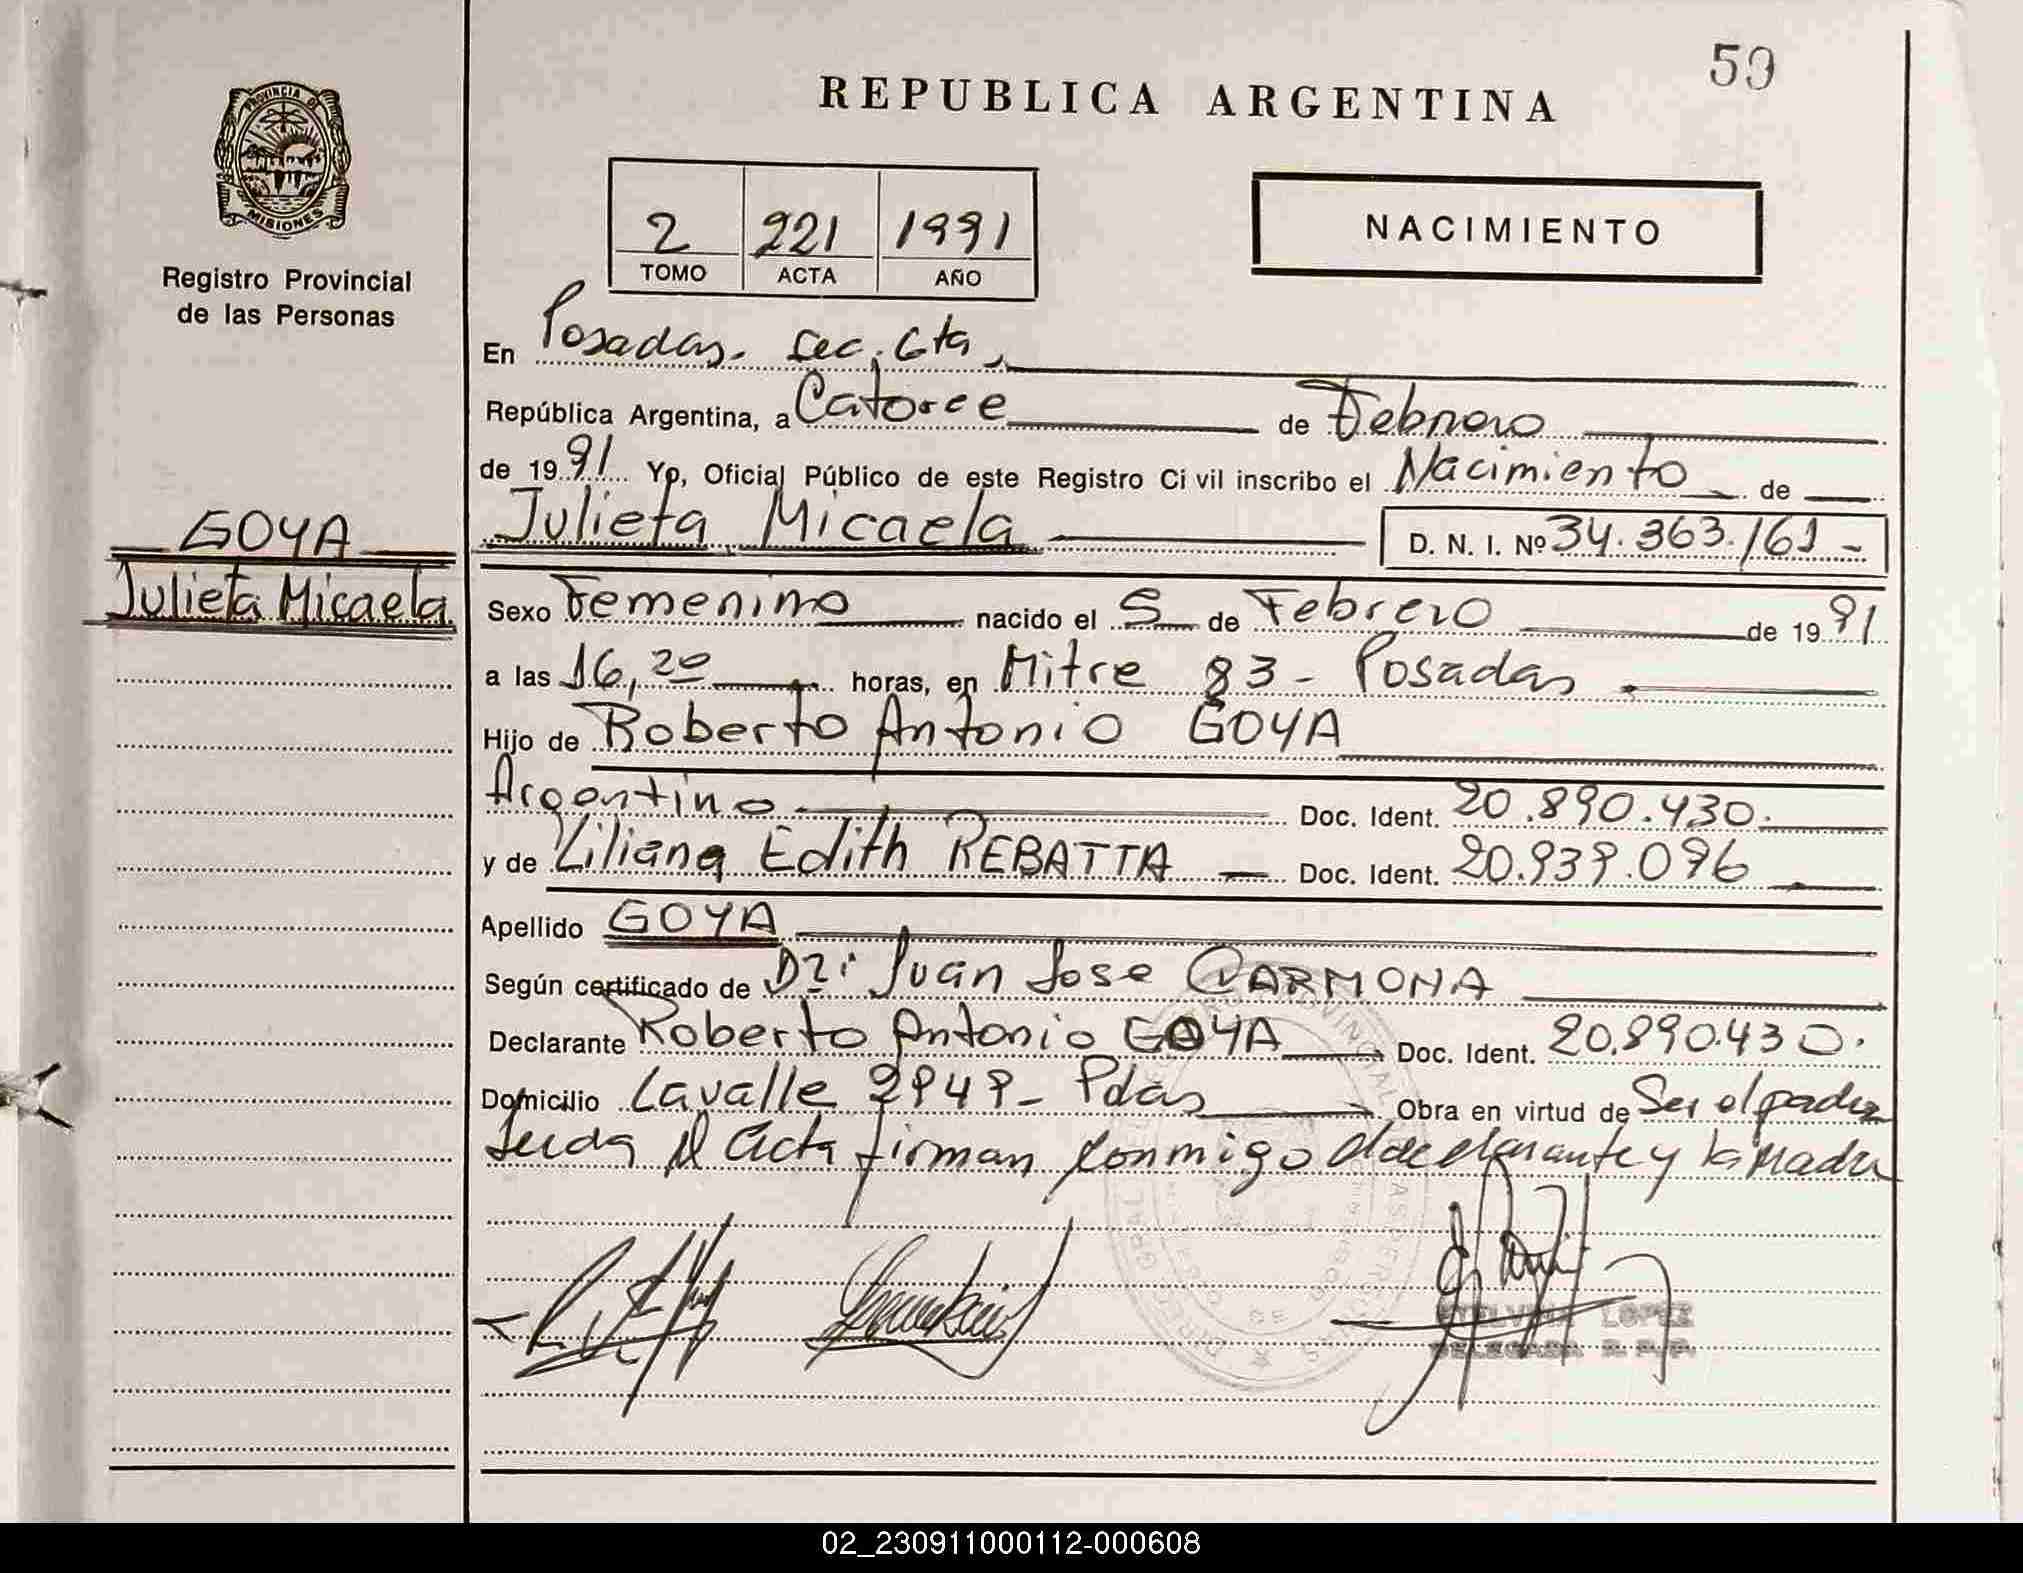 59
REPUBLICA ARGENTINA
PROVINCIA DE
MISIONES
Registro Provincial
de las Personas
2 221 1991
TOMO ACTA AÑO
NACIMIENTO
En Posadas. Sec. 6ta
República Argentina, a Catorce de Febrero
de 1991 Yo, Oficial Público de este Registro Civil inscribo el Nacimiento de
Julieta Micaela D. N. I. Nº 34.363.161-
GOYA
Julieta Micaela
Sexo Femenino nacido el 5 de Febrero de 1991
a las 16,20 horas, en Mitre 83 - Posadas
Hijo de Roberto Antonio GOYA
Argentino Doc. Ident. 20.890.430.
y de Liliana Edith REBATTA Doc. Ident. 20.939.096
Apellido GOYA
Según certificado de Dr: Juan Jose CARMONA
Declarante Roberto Antonio GOYA Doc. Ident. 20.890.430.
Domicilio Lavalle 2949- Pdas Obra en virtud de Ser el padre
Leida el Acta firman conmigo el declarante y la Madre
LOPEZ
DELEGADA R. P. P.
02_230911000112-000608